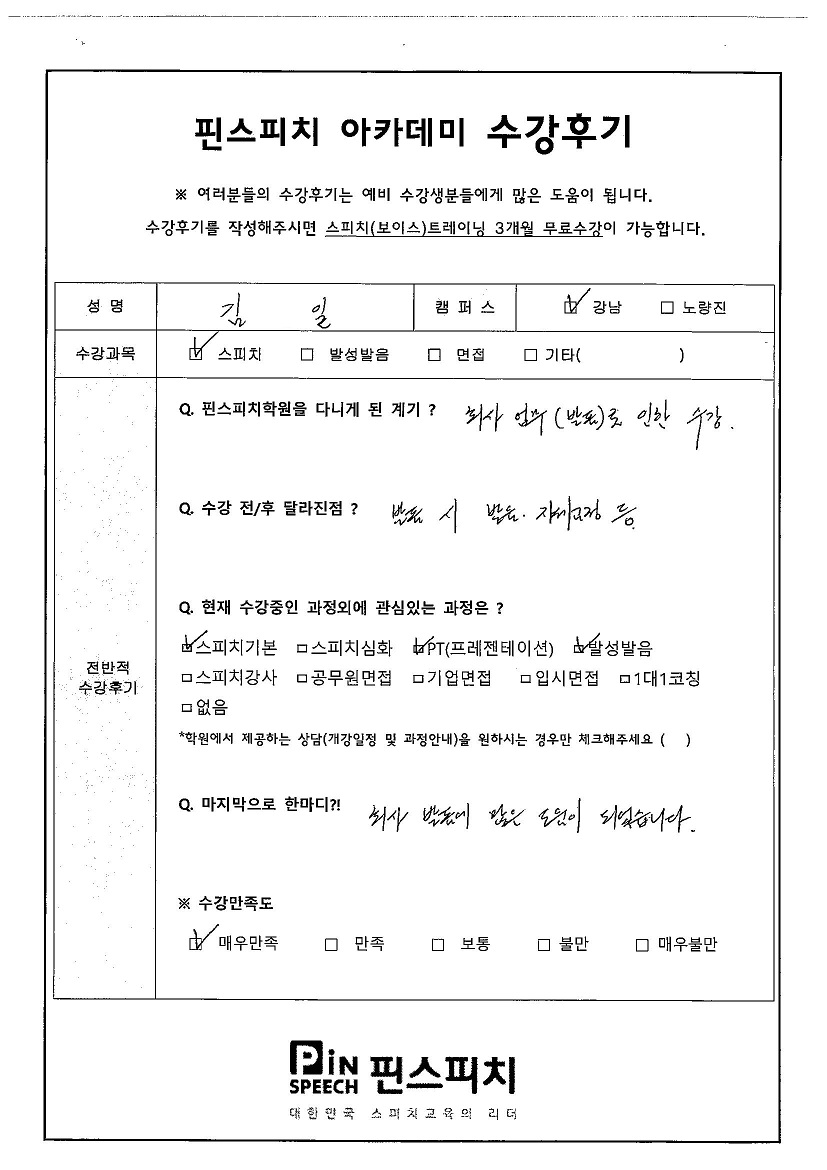 핀스피치 아카데미 수강후기
※ 여러분들의 수강후기는 예비 수강생분들에게 많은 도움이 됩니다.
수강후기를 작성해주시면 스피치(보이스)트레이닝 3개월 무료수강이 가능합니다.
성 명 김 일 캠 퍼 스 ☑ 강남 □ 노량진
수강과목 ☑ 스피치 □ 발성발음 □ 면접 □ 기타( )
Q. 핀스피치학원을 다니게 된 계기 ? 회사 업무 (발표)로 인한 수강.
Q. 수강 전/후 달라진점 ? 발표 시 발음. 자세교정 등.
Q. 현재 수강중인 과정외에 관심있는 과정은 ?
☑스피치기본 □스피치심화 ☑PT(프레젠테이션) ☑발성발음
전반적
수강후기
□스피치강사 □공무원면접 □기업면접 □입시면접 □1대1코칭
□없음
*학원에서 제공하는 상담(개강일정 및 과정안내)을 원하시는 경우만 체크해주세요 ( )
Q. 마지막으로 한마디?! 회사 발표에 많은 도움이 되었습니다.
※ 수강만족도
☑ 매우만족 □ 만족 □ 보통 □ 불만 □ 매우불만
PiN SPEECH 핀스피치
대한민국 스피치교육의 리더